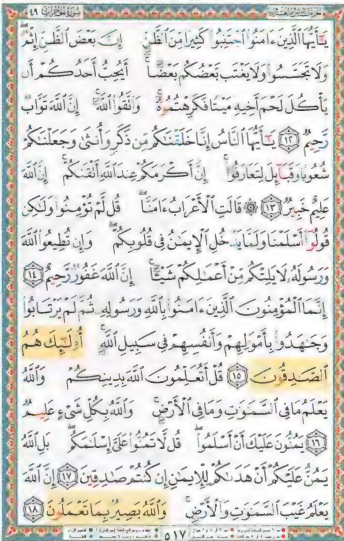 سورة الحجرات ٤٩
يَٰٓأَيُّهَا ٱلَّذِينَ ءَامَنُوا۟ ٱجْتَنِبُوا۟ كَثِيرًا مِّنَ ٱلظَّنِّ إِنَّ بَعْضَ ٱلظَّنِّ إِثْمٌ
وَلَا تَجَسَّسُوا۟ وَلَا يَغْتَب بَّعْضُكُم بَعْضًا أَيُحِبُّ أَحَدُكُمْ أَن
يَأْكُلَ لَحْمَ أَخِيهِ مَيْتًا فَكَرِهْتُمُوهُ وَٱتَّقُوا۟ ٱللَّهَ إِنَّ ٱللَّهَ تَوَّابٌ
رَّحِيمٌ ١٢ يَٰٓأَيُّهَا ٱلنَّاسُ إِنَّا خَلَقْنَٰكُم مِّن ذَكَرٍ وَأُنثَىٰ وَجَعَلْنَٰكُمْ
شُعُوبًا وَقَبَآئِلَ لِتَعَارَفُوٓا۟ إِنَّ أَكْرَمَكُمْ عِندَ ٱللَّهِ أَتْقَىٰكُمْ إِنَّ ٱللَّهَ
عَلِيمٌ خَبِيرٌ ١٣ ۞ قَالَتِ ٱلْأَعْرَابُ ءَامَنَّا قُل لَّمْ تُؤْمِنُوا۟ وَلَٰكِن
قُولُوٓا۟ أَسْلَمْنَا وَلَمَّا يَدْخُلِ ٱلْإِيمَٰنُ فِى قُلُوبِكُمْ وَإِن تُطِيعُوا۟ ٱللَّهَ
وَرَسُولَهُۥ لَا يَلِتْكُم مِّنْ أَعْمَٰلِكُمْ شَيْـًٔا إِنَّ ٱللَّهَ غَفُورٌ رَّحِيمٌ ١٤
إِنَّمَا ٱلْمُؤْمِنُونَ ٱلَّذِينَ ءَامَنُوا۟ بِٱللَّهِ وَرَسُولِهِۦ ثُمَّ لَمْ يَرْتَابُوا۟
وَجَٰهَدُوا۟ بِأَمْوَٰلِهِمْ وَأَنفُسِهِمْ فِى سَبِيلِ ٱللَّهِ أُو۟لَٰٓئِكَ هُمُ
ٱلصَّٰدِقُونَ ١٥ قُلْ أَتُعَلِّمُونَ ٱللَّهَ بِدِينِكُمْ وَٱللَّهُ
يَعْلَمُ مَا فِى ٱلسَّمَٰوَٰتِ وَمَا فِى ٱلْأَرْضِ وَٱللَّهُ بِكُلِّ شَىْءٍ عَلِيمٌ
١٦ يَمُنُّونَ عَلَيْكَ أَنْ أَسْلَمُوا۟ قُل لَّا تَمُنُّوا۟ عَلَىَّ إِسْلَٰمَكُم بَلِ ٱللَّهُ
يَمُنُّ عَلَيْكُمْ أَنْ هَدَىٰكُمْ لِلْإِيمَٰنِ إِن كُنتُمْ صَٰدِقِينَ ١٧ إِنَّ ٱللَّهَ
يَعْلَمُ غَيْبَ ٱلسَّمَٰوَٰتِ وَٱلْأَرْضِ وَٱللَّهُ بَصِيرٌۢ بِمَا تَعْمَلُونَ ١٨
٥١٧